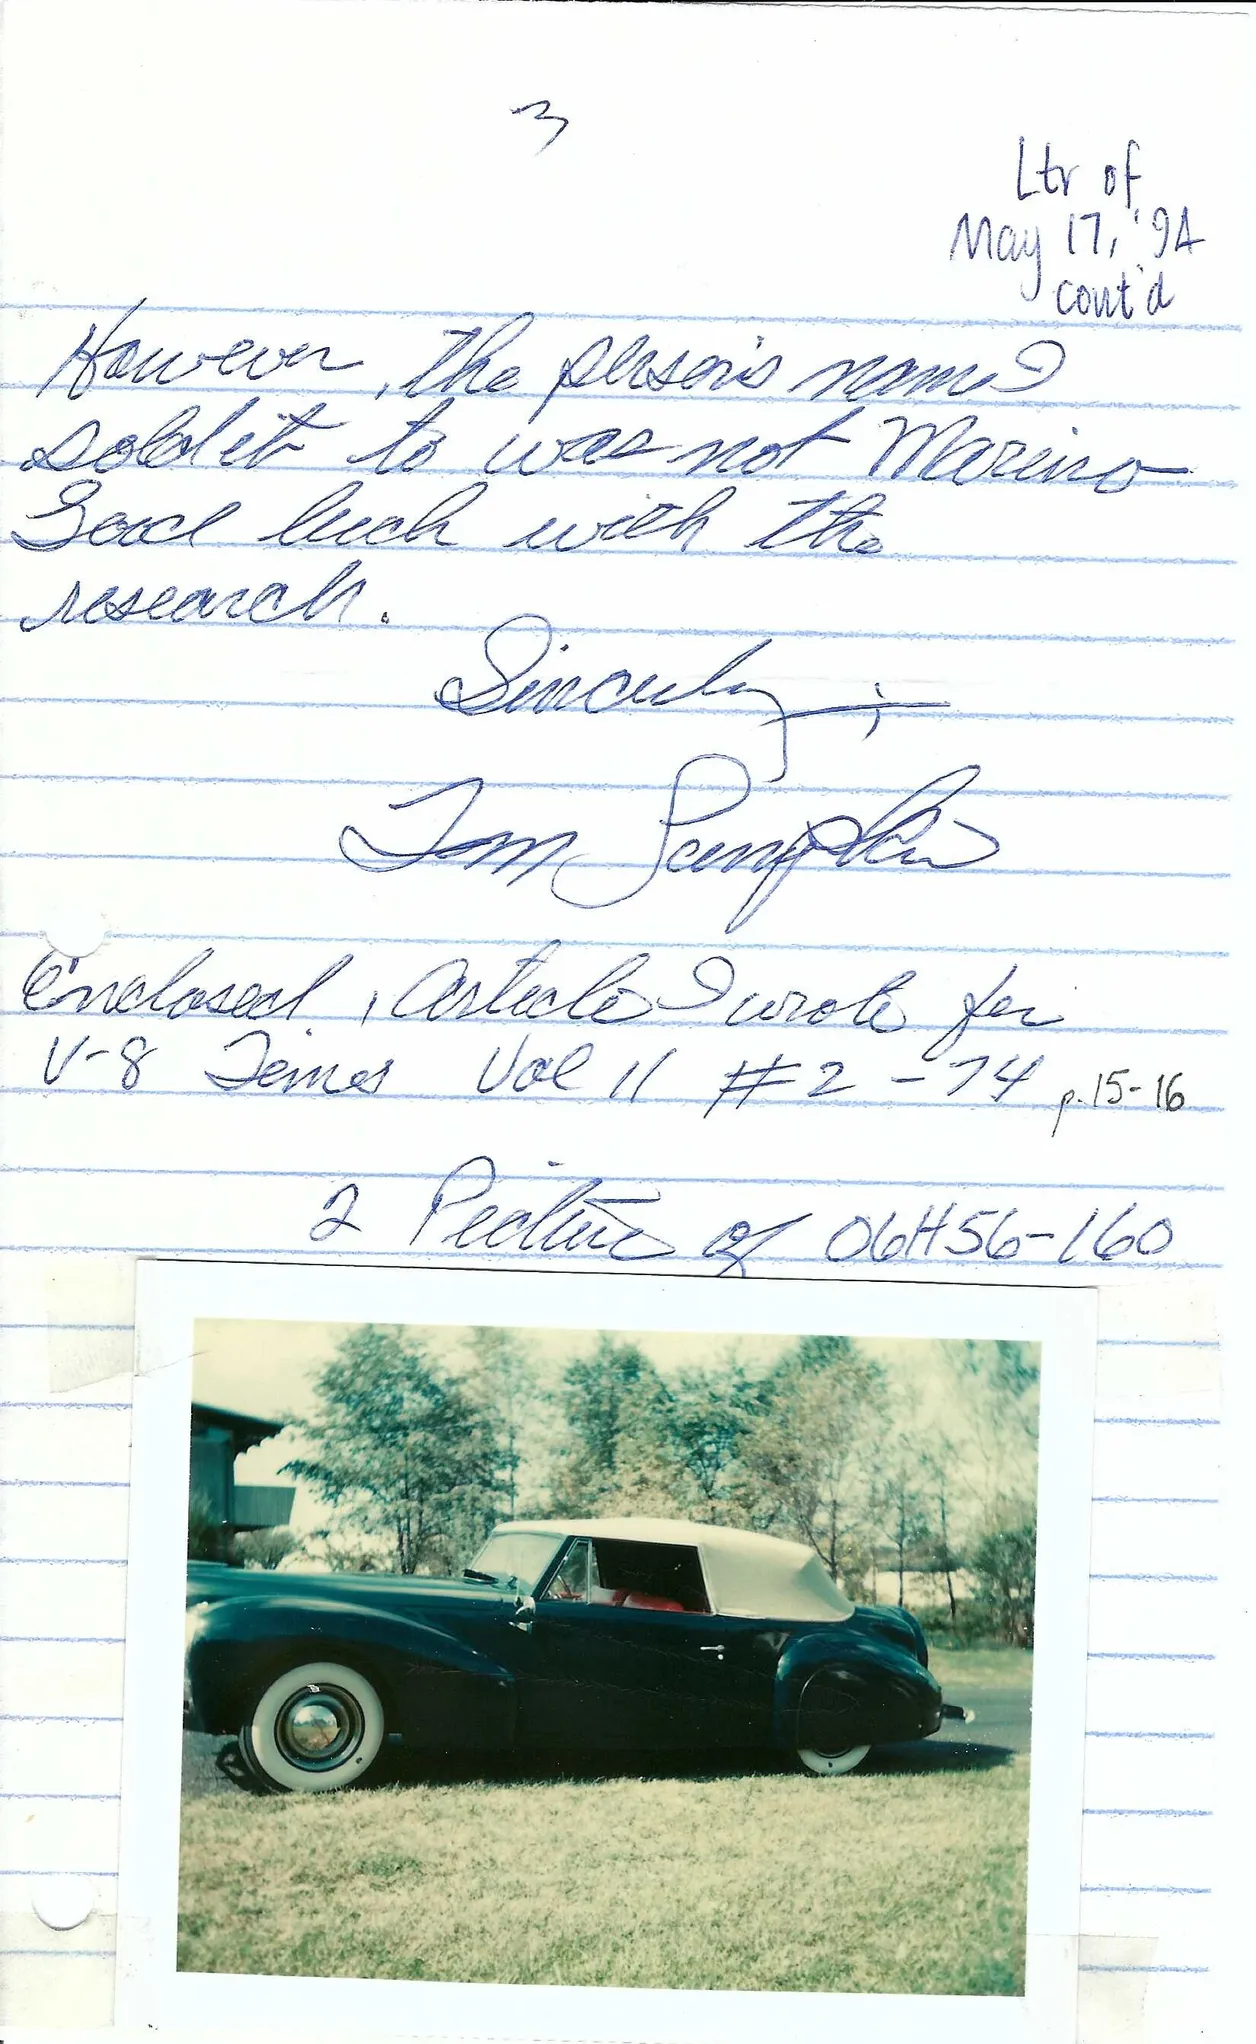 3
Ltr of
May 17, '94
cont'd
However, the person's name I
sold it to was not Marino
Good luck with the
research.
Sincerely,
Tom
Enclosed, Article I wrote for
V-8 Times Vol 11 #2 - 74 p. 15-16
2 Picture of 06H56-160